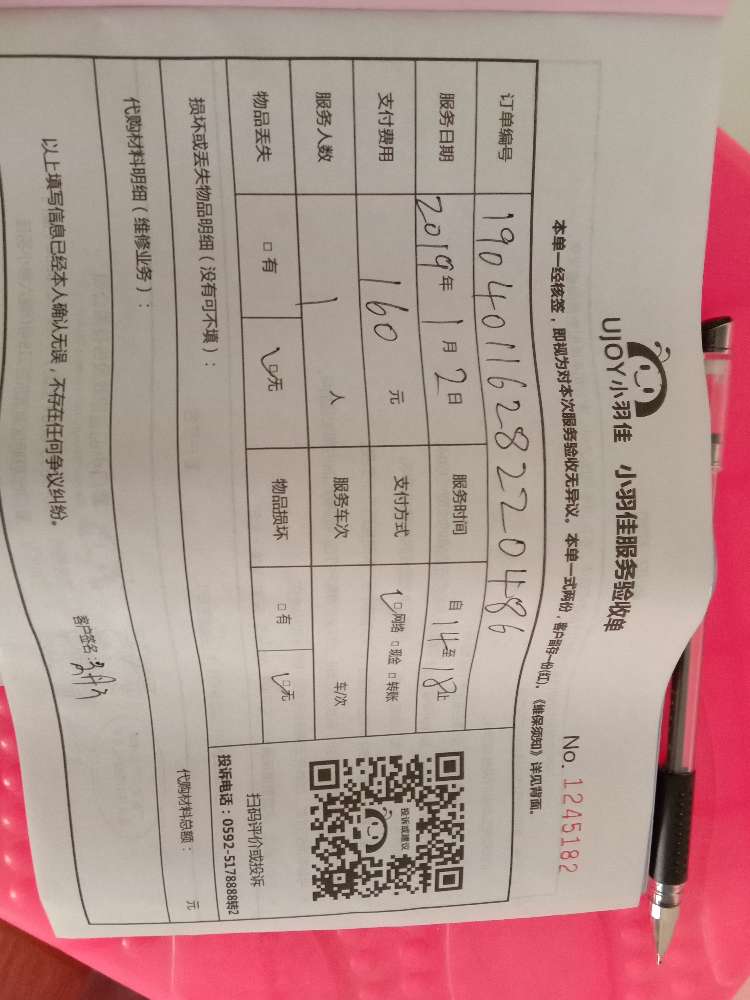 UJOY小羽佳 小羽佳服务验收单
No. 1245182
本单一经核签，即视为对本次服务验收无异议。本单一式两份，客户留存一份(红)，《维保须知》详见背面。
订单编号 1904011628220486
服务日期 2019年1月2日 服务时间 自14至18止
支付费用 160元 支付方式 ☑网络 □现金 □转账
服务人数 1人 服务车次 车/次
物品丢失 □有 ☑无 物品损坏 □有 ☑无
投诉或建议
扫码评价或投诉
投诉电话：0592-5178888转2
损坏或丢失物品明细（没有可不填）：
代购材料明细（维修业务）： 代购材料总额： 元
以上填写信息已经本人确认无误，不存在任何争议纠纷。
客户签名：